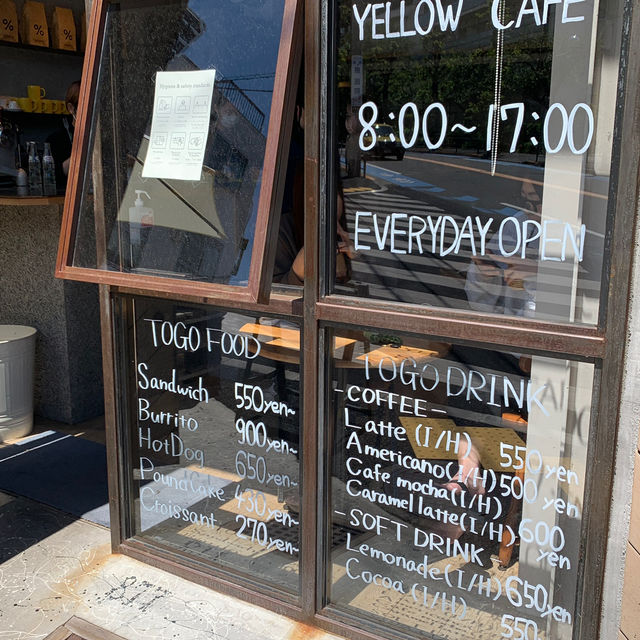 YELLOW CAFE
8:00~17:00
EVERYDAY OPEN
Hygiene & safety standards
TOGO FOOD
Sandwich 550yen~
Burrito 900yen~
HotDog 650yen~
Poundcake 430yen~
Croissant 270yen~
TOGO DRINK
-COFFEE-
Latte (I/H) 550yen
Americano(I/H)500yen
Cafe mocha(I/H)
Caramel latte(I/H)600yen
-SOFT DRINK-
Lemonade(I/H)650yen
Cocoa (I/H) 550
% % %